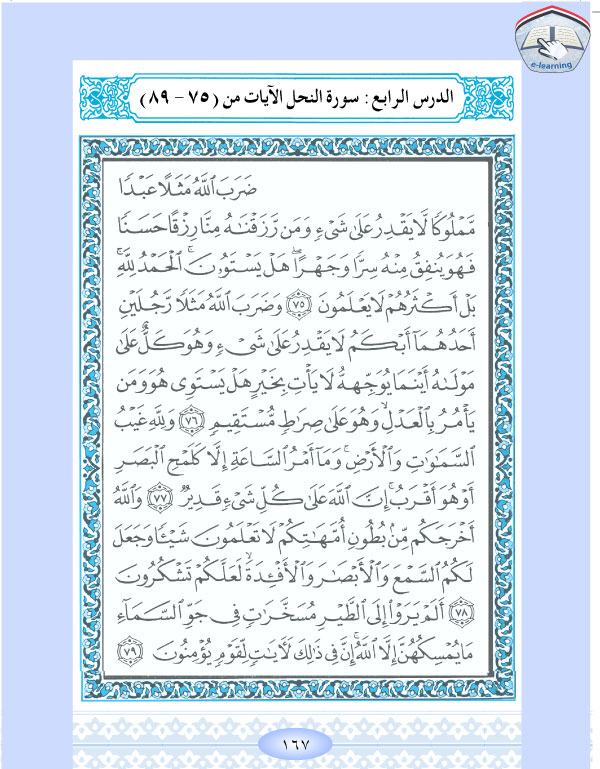 e-learning
الدرس الرابع : سورة النحل الآيات من (٧٥ - ٨٩)
ضَرَبَ اللَّهُ مَثَلًا عَبْدًا
مَّمْلُوكًا لَّا يَقْدِرُ عَلَىٰ شَيْءٍ وَمَن رَّزَقْنَٰهُ مِنَّا رِزْقًا حَسَنًا
فَهُوَ يُنفِقُ مِنْهُ سِرًّا وَجَهْرًا ۖ هَلْ يَسْتَوُۥنَ ۚ الْحَمْدُ لِلَّهِ ۚ
بَلْ أَكْثَرُهُمْ لَا يَعْلَمُونَ ٧٥ وَضَرَبَ اللَّهُ مَثَلًا رَّجُلَيْنِ
أَحَدُهُمَآ أَبْكَمُ لَا يَقْدِرُ عَلَىٰ شَيْءٍ وَهُوَ كَلٌّ عَلَىٰ
مَوْلَىٰهُ أَيْنَمَا يُوَجِّههُّ لَا يَأْتِ بِخَيْرٍ هَلْ يَسْتَوِى هُوَ وَمَن
يَأْمُرُ بِالْعَدْلِ ۙ وَهُوَ عَلَىٰ صِرَٰطٍ مُّسْتَقِيمٍ ٧٦ وَلِلَّهِ غَيْبُ
السَّمَٰوَٰتِ وَالْأَرْضِ ۚ وَمَآ أَمْرُ السَّاعَةِ إِلَّا كَلَمْحِ الْبَصَرِ
أَوْ هُوَ أَقْرَبُ ۚ إِنَّ اللَّهَ عَلَىٰ كُلِّ شَيْءٍ قَدِيرٌ ٧٧ وَاللَّهُ
أَخْرَجَكُم مِّنۢ بُطُونِ أُمَّهَٰتِكُمْ لَا تَعْلَمُونَ شَيْـًٔا وَجَعَلَ
لَكُمُ السَّمْعَ وَالْأَبْصَٰرَ وَالْأَفْـِٔدَةَ ۙ لَعَلَّكُمْ تَشْكُرُونَ
٧٨ أَلَمْ يَرَوْا إِلَى الطَّيْرِ مُسَخَّرَٰتٍ فِى جَوِّ السَّمَآءِ
مَا يُمْسِكُهُنَّ إِلَّا اللَّهُ ۗ إِنَّ فِى ذَٰلِكَ لَءَايَٰتٍ لِّقَوْمٍ يُؤْمِنُونَ ٧٩
١٦٧